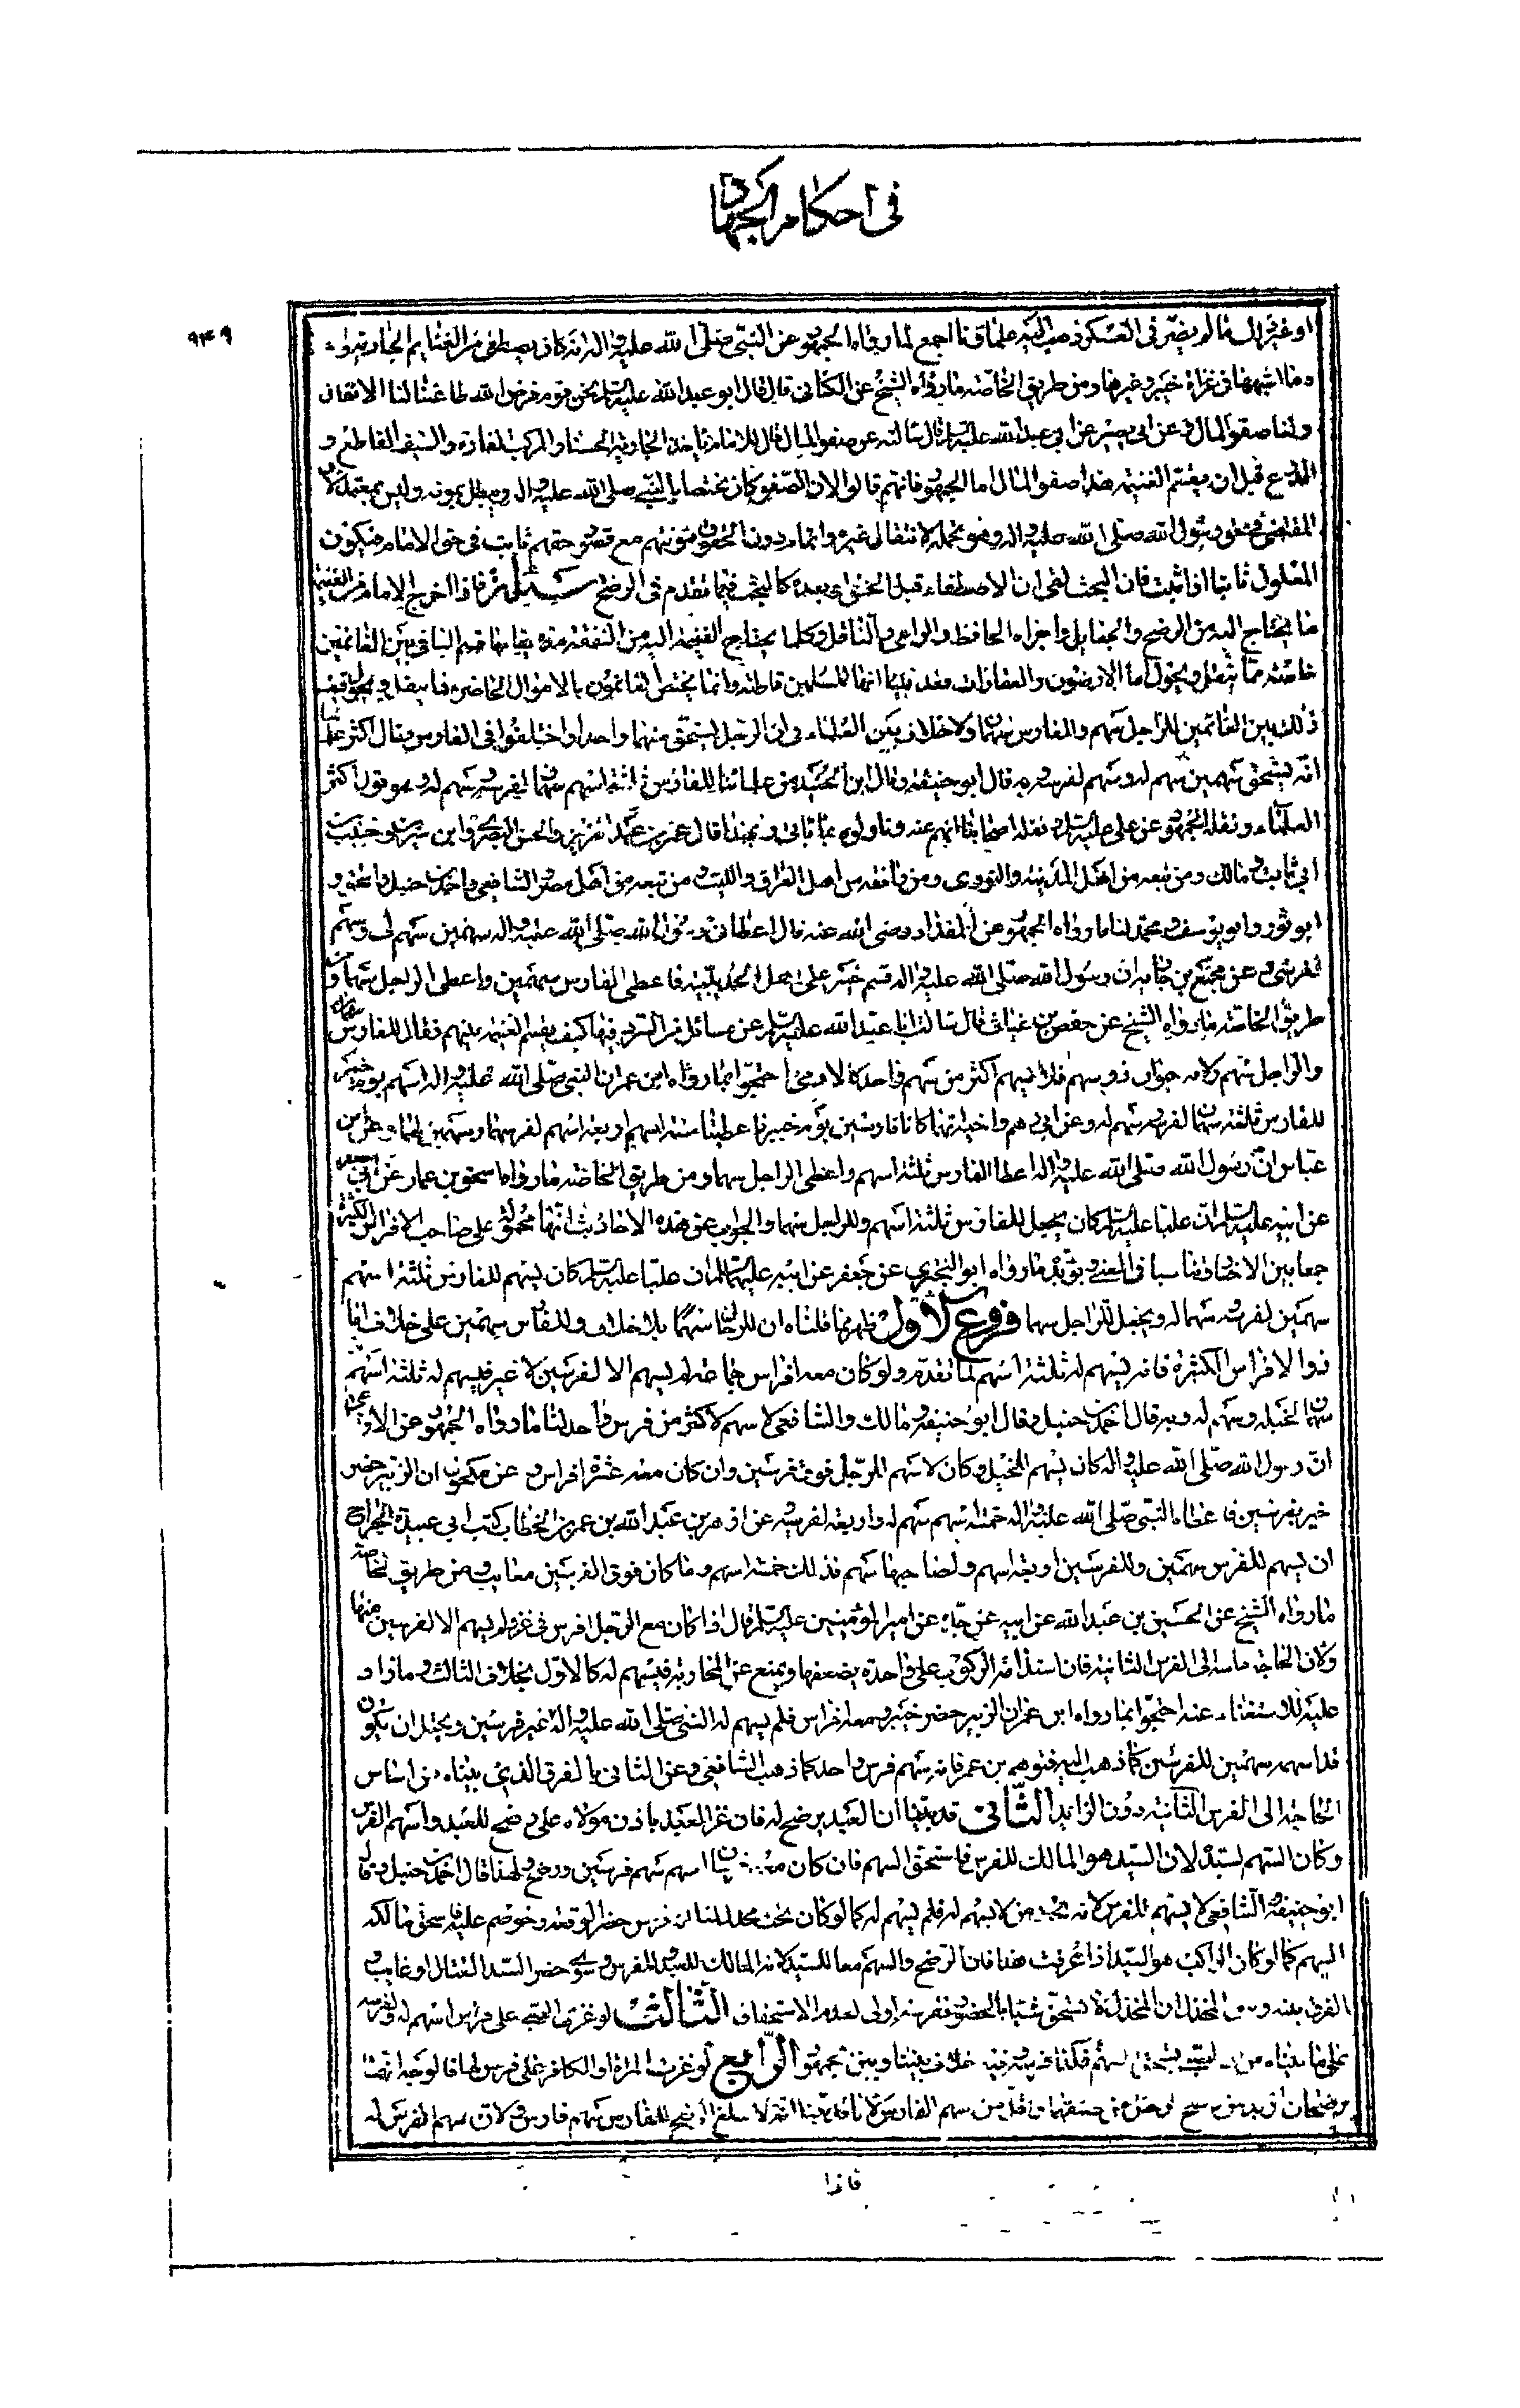 في احكام الجهاد
٩٤٩
او غير ذلك ما لم يضر في العسكر ذهب اليه علماؤنا اجمع لما رواه الجمهور عن النبي صلى الله عليه واله انه كان يصطفي من الغنايم الجارية و
وما اشبهها في غزاة خيبر وغيرها ومن طريق الخاصة ما رواه الشيخ عن الكناني قال قال ابو عبد الله عليه السلم نحن قوم فرض الله طاعتنا لنا الانفال
ولنا صفو المال وعن ابي بصير عن ابي عبد الله عليه السلم قال سالته عن صفو المال قال للامام ياخذ الجارية الحسناء والمركب الفاره والسيف القاطع و
الدرع قبل ان يقسم الغنيمة هذا صفو المال اما الجمهور فانهم قالوا لان الصفو كان مختصا بالنبي صلى الله عليه واله ويبطل بموته وليس بمعتمد لان
المقتضي في حق رسول الله صلى الله عليه واله وهو تحمله لاثقال غيره واتمامه دون الحقوق مؤنتهم مع قصور حقهم ثابت في حق الامام فيكون
المعلول ثابتا اذا ثبت فان البحث في ان الاصطفاء قبل الخمس او بعده كالبحث فيما تقدم في الرضخ مسئلة فاذا اخرج الامام من الغنيمة
ما يحتاج اليه من الرضخ والجعايل واجراه الحافظ والراعي والناقل وكلما يحتاج الغنيمة اليه من النفقة مدة بقائها قسم الباقي بين الغانمين
خاصة مما ينقل ويحول اما الارضون والعقارات فقد بينا انها للمسلمين قاطبة وانما يختص الغانمون بالاموال الحاضرة مما ينقل ويحول فيقسم
ذلك بين الغانمين للراجل سهم وللفارس سهمان ولا خلاف بين العلماء في ان الرجل يستحق سهما واحدا واختلفوا في الفارس فقال اكثر علمائنا
انه يستحق سهمين سهم له وسهم لفرسه وبه قال ابو حنيفة وقال ابن الجنيد من علمائنا للفارس ثلثة اسهم سهمان لفرسه وسهم له وهو قول اكثر
العلماء ونقله الجمهور عن علي عليه السلم ونقله اصحابنا ايضا عنه وتاولوه بما ياتي وبهذا قال عمر بن عبد العزيز والحسن البصري وابن سيرين وحبيب بن
ابي ثابت ومالك ومن تبعه من اهل المدينة والثوري ومن وافقه من اهل العراق والليث ومن تبعه من اهل مصر والشافعي واحمد بن حنبل واسحق و
ابو ثور وابو يوسف ومحمد لنا ما رواه الجمهور عن المقداد رضي الله عنه قال اعطاني رسول الله صلى الله عليه واله سهمين سهم لي وسهم
لفرسي وعن مجمع بن حارثة ان رسول الله صلى الله عليه واله قسم خيبر على اهل الحديبية فاعطى الفارس سهمين واعطى الراجل سهما ومن
طريق الخاصة ما رواه الشيخ عن حفص بن غياث قال سالت ابا عبد الله عليه السلم عن مسائل من السرية فيها كيف يقسم الغنيمة بينهم فقال للفارس سهمان
والراجل سهم ولانه حيوان ذو سهم فلا يسهم اكثر من سهم واحد كالادمي احتجوا بما رواه ابن عمر ان النبي صلى الله عليه واله اسهم يوم خيبر
للفارس ثلثة سهمان لفرسه وسهم له وعن ابي رهم واخيه انهما كانا فارسين يوم خيبر فاعطينا ستة اسهم اربعة اسهم لفرسيهما وسهمين لهما وعن ابن
عباس ان رسول الله صلى الله عليه واله اعطا الفارس ثلثة اسهم واعطى الراجل سهما ومن طريق الخاصة ما رواه اسحق بن عمار عن جعفر
عن ابيه عليهما السلم ان عليا عليه السلم كان يجعل للفارس ثلثة اسهم وللراجل سهما والجواب عن هذه الاحاديث انها محمولة على صاحب الافراس الكثيرة
جمعا بين الاخبار وقد سبق المعنى ويؤيده ما رواه ابو البختري عن جعفر عن ابيه عليهما السلم ان عليا عليه السلم كان يسهم للفارس ثلثة اسهم
سهمين لفرسه وسهما له ويجعل للراجل سهما فروع الاول ظهر بما قلناه ان للراجل سهما بلا خلاف وللفارس سهمين على خلاف اما
ذوا الافراس الكثيرة فانه يسهم له ثلثة اسهم لما تقدم ولو كان معه افراس جماعة لم يسهم الا لفرسين لا غير فيسهم له ثلثة اسهم
سهمان لخيله وسهم له وبه قال احمد بن حنبل وقال ابو حنيفة ومالك والشافعي لا سهم لاكثر من فرس واحد لنا ما رواه الجمهور عن الاوزاعي
ان رسول الله صلى الله عليه واله كان يسهم للخيل وكان لا يسهم للرجل فوق فرسين وان كان معه عشرة افراس وعن مكحول ان الزبير حضر
خيبر بفرسين فاعطاه النبي صلى الله عليه واله خمسة اسهم سهم له واربعة لفرسيه وعن ازهر بن عبد الله ان عمر بن الخطاب كتب الى ابي عبيدة الجراح
ان يسهم للفرس سهمين وللفرسين اربعة اسهم ولصاحبها سهم فذلك خمسة اسهم وما كان فوق الفرسين فهي جنايب ومن طريق الخاصة
ما رواه الشيخ عن الحسين بن عبد الله عن ابيه عن جده عن امير المؤمنين عليه السلم قال اذا كان مع الرجل افرس في غزو لم يسهم الا لفرسين منها
ولان الحاجة ماسة الى الفرس الثانية فان استدامة الركوب على واحدة يضعفها ويمنع عن المحاربة فيسهم له كالاول بخلاف الثالث وما زاد
عليه للاستغناء عنه احتجوا بما رواه ابن عمر ان الزبير حضر خيبر ومعه افراس فلم يسهم له النبي صلى الله عليه واله غير فرسين ويحتمل ان يكون
قد اسهم سهمين للفرسين كما ذهب اليه فتوهم بن عمر انه سهم فرس واحد كما ذهب الشافعي وعن الثاني بالفرق الذي بيناه من اساس
الحاجة الى الفرس الثانية دون الزايد الثاني قد بينا ان العبد يرضخ له فان غزا العبد باذن مولاه على فرس رضخ للعبد واسهم للفرس
وكان السهم لسيده لان السيد هو المالك للفرس فاستحق السهم فان كان معه فرسان اسهم سهم فرسين ورضخ وبهذا قال احمد بن حنبل وقال
ابو حنيفة والشافعي لا يسهم للفرس لانه تحت من لا يسهم له فلم يسهم له كما لو كان تحت مخذل لنا انه فرس حضر الوقعة وخوصم عليه فاستحق مالكه
السهم كما لو كان الراكب هو السيد اذا عرفت هذا فان الرضخ والسهم معا للسيد لانه المالك للعبد والفرس وسواء حضر السيد القتال او غاب و
الفرق بينه وبين المخذل ان المخذل لا يستحق شيئا بالحضور ففرسه اولى بعدم الاستحقاق الثالث لو غزا الصبي على فرس اسهم له ولفرسه
على ما بيناه من ان الصبي يستحق السهم فكذا فرسه وفيه خلاف بيننا وبين الجمهور الرابع لو غزت المراة او الكافر على فرس لهما فالوجه انهما
لان سهم الفرس له
فاذا